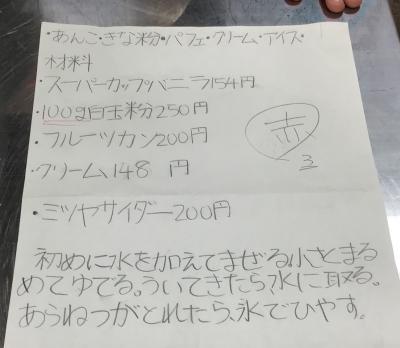 ・あんこ・きな粉・パフェ・クリーム・アイス・
材料
・スーパーカップバニラ154円
・100g白玉粉250円
・フルーツカン200円
・クリーム148 円
・ミツヤサイダー200円
赤
3
初めに水を加えてまぜる小さくまる
めてゆでる。ういてきたら水に取る。
あらねつがとれたら、氷でひやす。